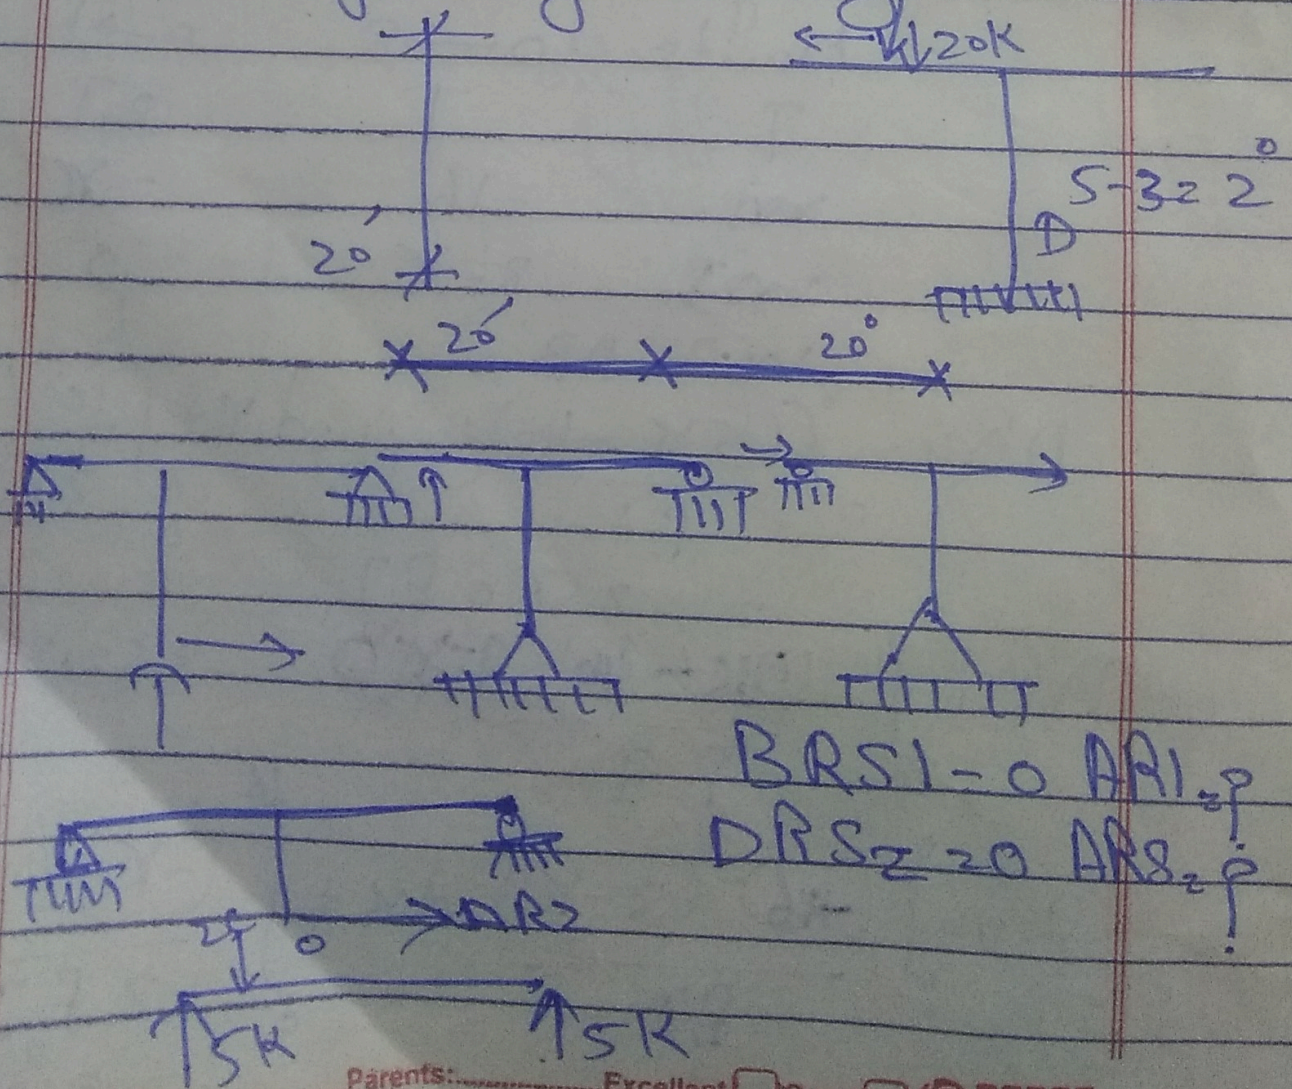 20K
5-3=2°
D
20'
20' 20°
BRS1-0 AR1=?
DRS2=0 ARS2=?
AR2
5K 5K
Parents: Excellent